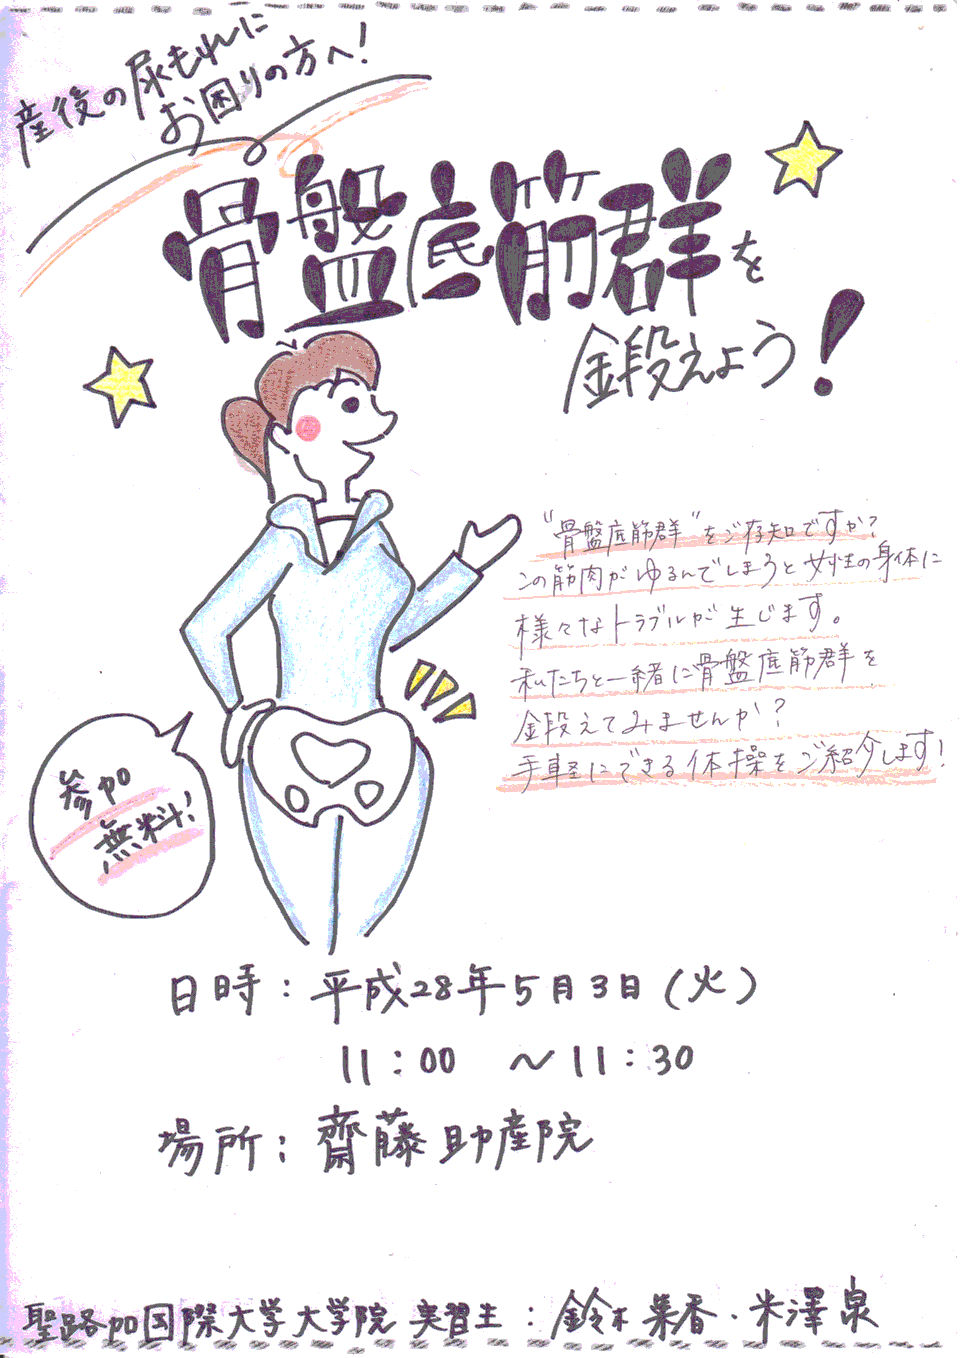 産後の尿もれに
お困りの方へ!
骨盤底筋群を
鍛えよう!
"骨盤底筋群"をご存知ですか?
この筋肉がゆるんでしまうと女性の身体に
様々なトラブルが生じます。
私たちと一緒に骨盤底筋群を
鍛えてみませんか?
手軽にできる体操をご紹介します!
参加
無料!
日時:平成28年5月3日(火)
11:00 ~11:30
場所:齋藤助産院
聖路加国際大学大学院 実習生:鈴木菜香・米澤泉